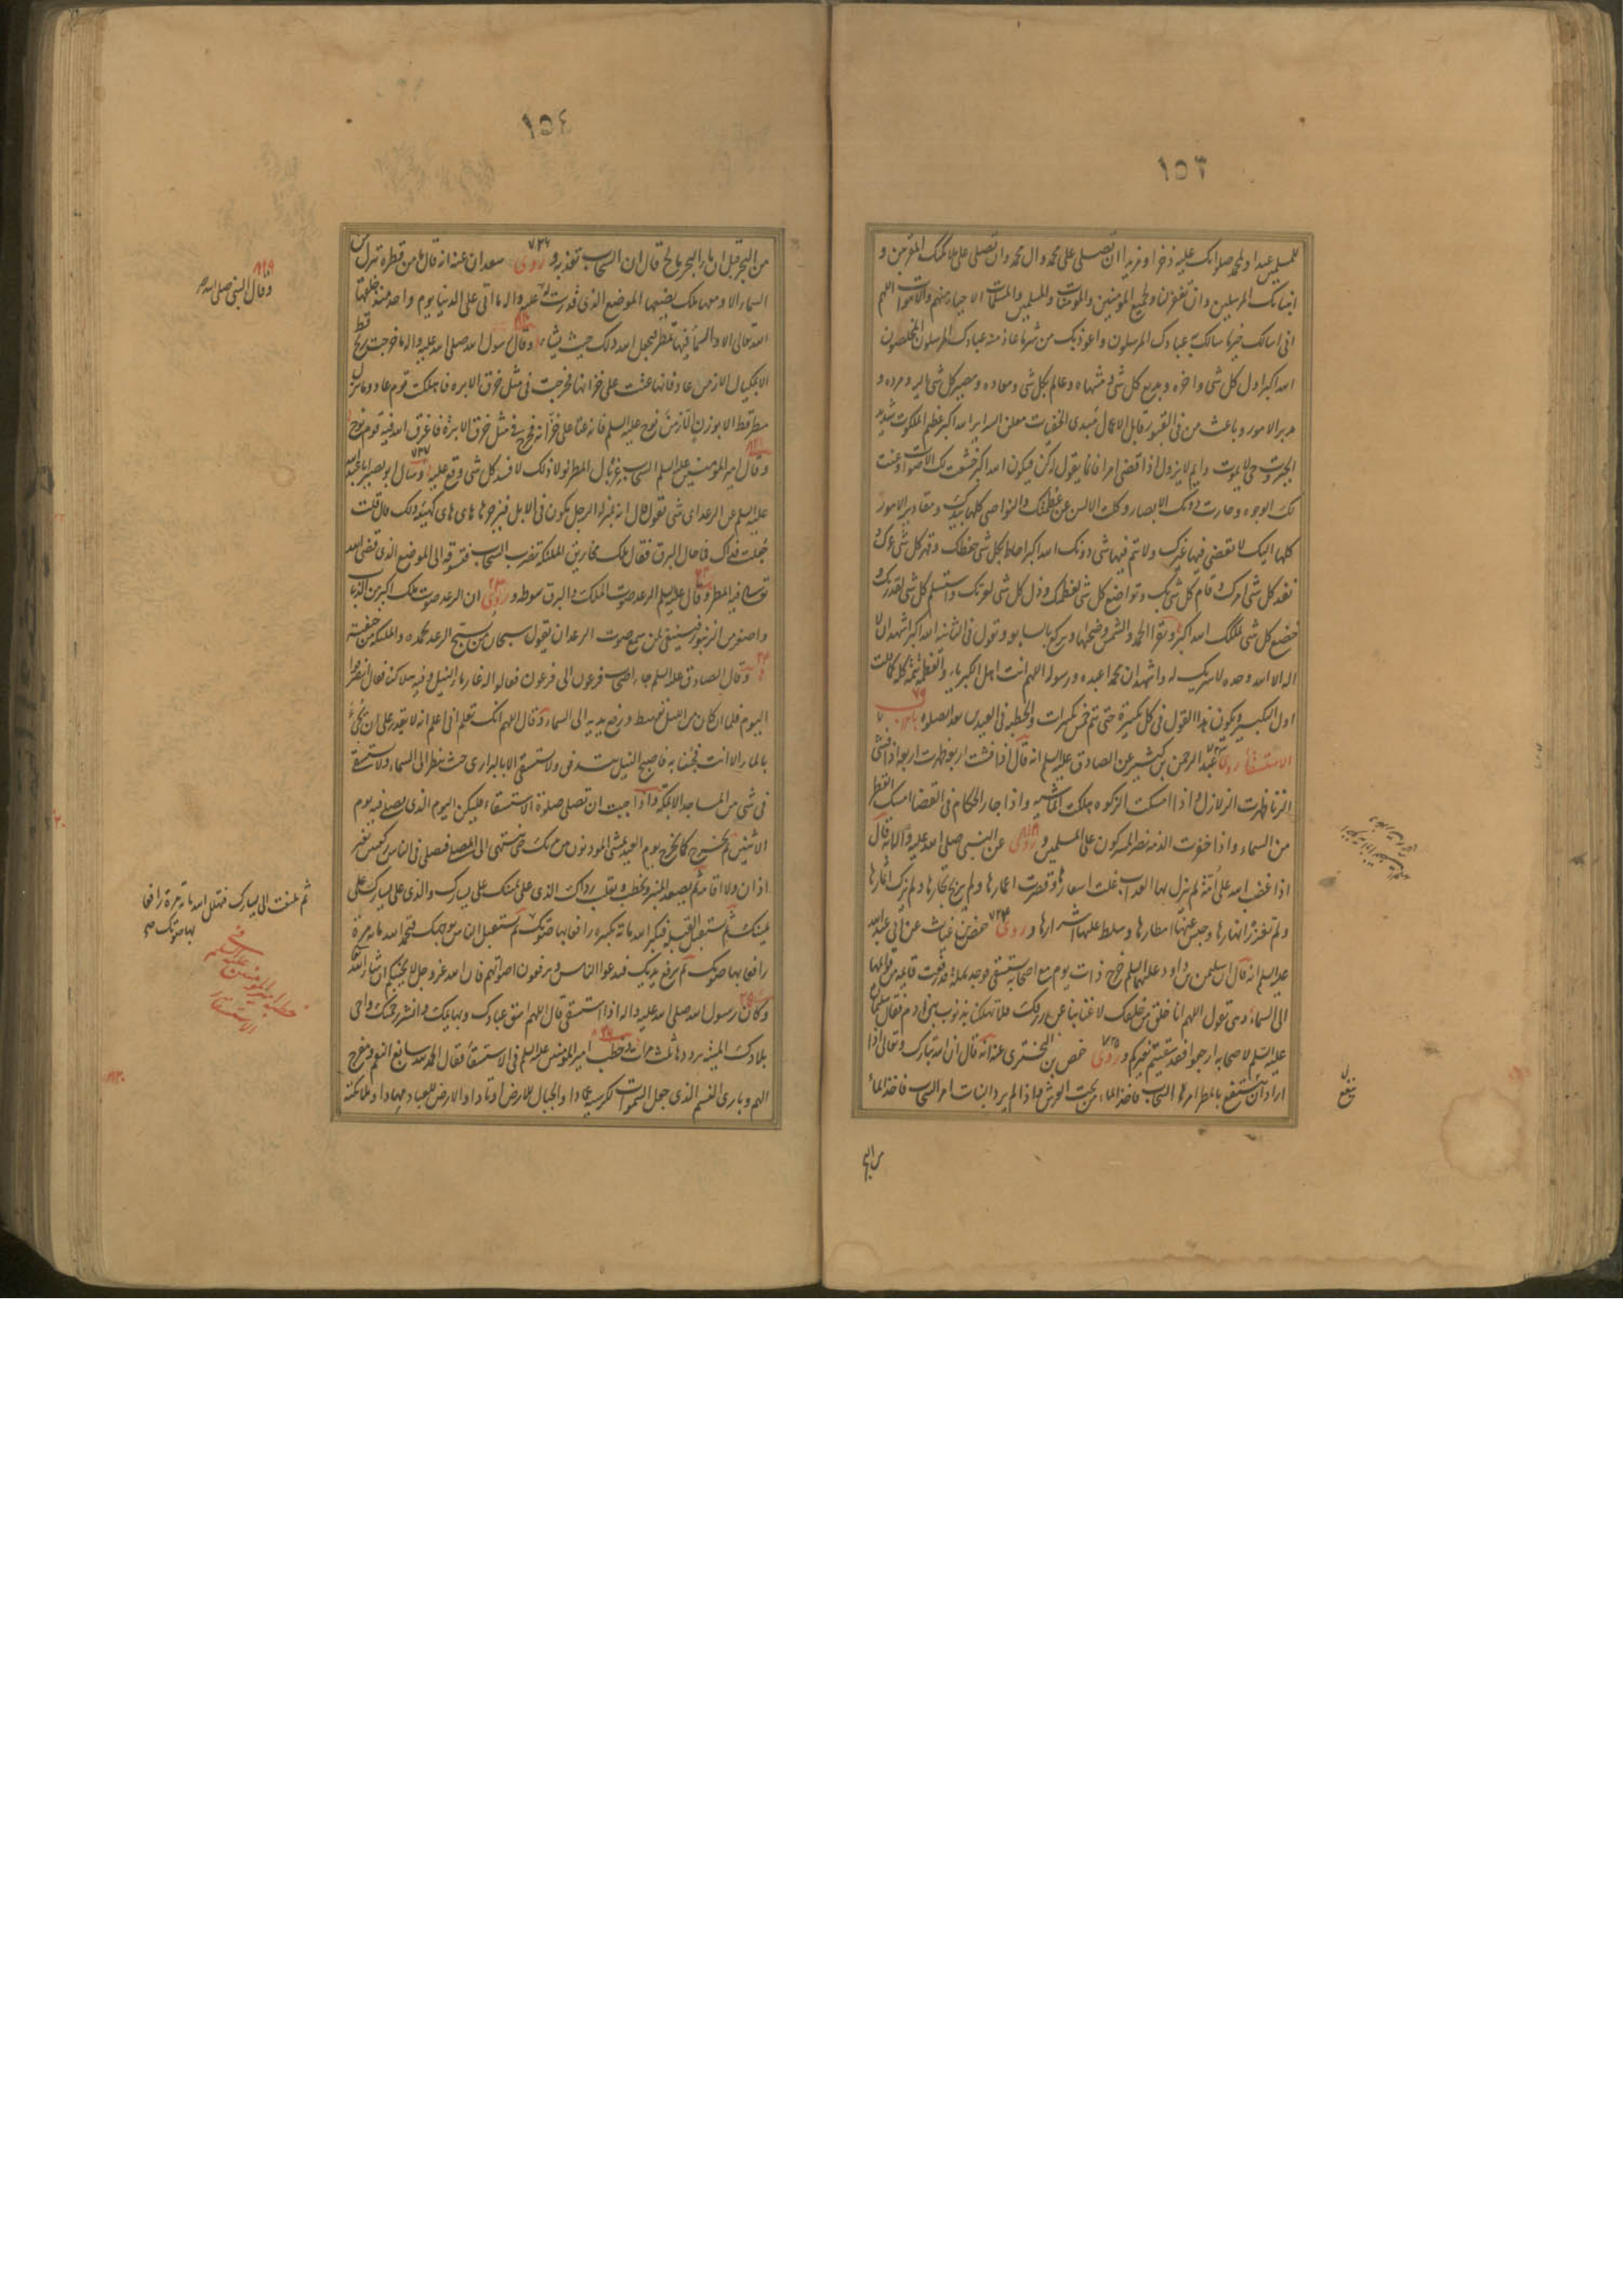 ١٥٣
للمسلمين عيدا ولمحمد صلواتك عليه ذخرا ومزيدا ان تصلى على محمد وال محمد وان تصلى على ملائكتك المقربين و
انبيائك المرسلين وان تغفر لنا ولجميع المؤمنين والمؤمنات والمسلمين والمسلمات الاحياء منهم والاموات اللهم
انى اسالك خير ما سالك به عبادك المرسلون واعوذ بك من شر ما عاذ منه عبادك المرسلون المخلصون
الله اكبر اول كل شى واخره وبديع كل شى ومنتهاه وعالم بكل شى ومعاده ومصير كل شى اليه ومرده و
مدبر الامور وباعث من فى القبور قابل الاعمال مبدى الخفيات معلن السراير الله اكبر عظيم الملكوت شديد
الجبروت حى لا يموت دايم لا يزول اذا قضى امرا فانما يقول له كن فيكون الله اكبر خشعت لك الاصوات وعنت
لك الوجوه وحارت دونك الابصار وكلت الالسن عن عظمتك والنواصى كلها بيدك ومقادير الامور
كلها اليك لا يقضى فيها غيرك ولا يتم فيها شى دونك الله اكبر احاط بكل شى حفظك وقهر كل شى عزك و
نفذ كل شى امرك وقام كل شى بك وتواضع كل شى لعظمتك وذل كل شى لعزتك واستسلم كل شى لقدرتك و
خضع كل شى لملكك الله اكبر ويقرا الحمد والشمس وضحيها ويركع بالسابعة وتقول فى الثانية الله اكبر اشهد ان لا
اله الا الله وحده لا شريك له واشهد ان محمدا عبده ورسوله اللهم انت اهل الكبرياء والعظمة تتمه كله كما قلت
اول التكبير ويكون هذا القول فى كل تكبيرة حتى تتم خمس تكبيرات والخطبة فى العيدين بعد الصلوة باب ٧٩
الاستسقاء روى عبد الرحمن بن كثير عن الصادق عليه السلم انه قال اذا فشت اربعة ظهرت اربعة اذا فشى
الزنا ظهرت الزلازل واذا امسكت الزكوة هلكت الماشية واذا جار الحكام فى القضا امسك القطر
من السماء واذا خفرت الذمة نصر المشركون على المسلمين وروى عن النبى صلى الله عليه واله انه قال
اذا غضب الله على امة ثم لم ينزل بها العذاب غلت اسعارها وقصرت اعمارها ولم يربح تجارها ولم تزك ثمارها
ولم تغزر انهارها وحبس عنها امطارها وسلط عليها اشرارها وروى ٧٢٤ حفص بن غياث عن ابى عبد الله
عليه السلم انه قال ان سليمن بن داود عليهما السلم خرج ذات يوم مع اصحابه يستسقى فوجد نملة قد رفعت قايمة من قوايمها
الى السماء وهى تقول اللهم انا خلق من خلقك لا غنا بنا عن رزقك فلا تهلكنا بذنوب بنى ادم فقال سليمان
عليه السلم لاصحابه ارجعوا فقد سقيتم بغيركم وروى ٧٢٥ حفص بن البخترى عنه انه قال ان الله تبارك وتعالى اذا
اراد ان ينفع بالمطر امر السحاب فاخذ الماء من تحت العرش واذا لم يرد النبات امر السحاب فاخذ الماء
من البحر
١٥٤
من البحر قيل ان ماء البحر مالح قال ان السحاب تعذبه وروى ٧٢٦ سعدان عنه انه قال ما من قطرة تنزل من
السماء الا ومعها ملك يضعها الموضع الذى قدرت له عليه واله ما اتى على الدنيا يوم واحد منذ خلقها
الله تعالى الا والسماء فيها تمطر فيجعل الله ذلك حيث يشاء وقال رسول الله صلى الله عليه واله ما خرجت ريح قط
الا بمكيال الا زمن عاد فانها عتت على خزانها فخرجت فى مثل خرق الابرة فاهلكت قوم عاد وما نزل
مطر قط الا بوزن الا زمن نوح عليه السلم فانه عتا على خزانه فخرج فى مثل خرق الابرة فاغرق الله فيه قوم نوح
وقال امير المؤمنين عليه السلم السحاب غربال المطر لولا ذلك لافسد كل شى وقع عليه ٧٢٧ وسال ابو بصير ابا عبد الله
عليه السلم عن الرعد اى شى يقول قال انه بمنزلة الرجل يكون فى الابل فيزجرها هاى هاى كهيئة ذلك قال قلت
جعلت فداك فما حال البرق فقال تلك مخاريق الملئكة تضرب السحاب فتسوقه الى الموضع الذى قضى الله
تعالى فيه المطر وقال عليه السلم الرعد صوت الملك والبرق سوطه وروى ان الرعد صوت ملك اكبر من الذباب
واصغر من الزنبور فينبغى لمن سمع صوت الرعد ان يقول سبحان من يسبح الرعد بحمده والملئكة من خيفته
وقال الصادق عليه السلم جاء اصحاب فرعون الى فرعون فقالوا له غار ماء النيل وفيه هلاكنا فقال انصرفوا
اليوم فلما ان كان من الليل توسط ورفع يديه الى السماء وقال اللهم انك تعلم انى اعلم انه لا يقدر على ان يجىء
بالماء الا انت فجئنا به فاصبح النيل يتدفق ولا يستسقى الا بالبرارى حيث ينظر الى السماء ولا يستسقى
فى شى من المساجد الا بمكة واذا احببت ان تصلى صلوة الاستسقاء فليكن اليوم الذى تصلى فيه يوم
الاثنين ثم تخرج كما تخرج يوم العيد يمشى المؤذنون بين يديك حتى ينتهى الى المصلى فتصلى فى الناس ركعتين بغير
اذان ولا اقامة ثم تصعد المنبر وتخطب وتقلب رداك الذى على يمينك على يسارك والذى على يسارك على
يمينك ثم تستقبل القبلة فتكبر الله مائة تكبيرة رافعا بها صوتك ثم تستقبل الناس بوجهك فتحمد الله مائة مرة
رافعا بها صوتك ثم ترفع يديك فتدعو الناس ويرفعون اصواتهم فان الله عز وجل لا يخيبكم ان شاء الله
وكان رسول الله صلى الله عليه واله اذا استسقى قال اللهم اسق عبادك وبهايمك وانشر رحمتك واحى
بلادك الميتة يرددها ثلث مرات وخطب امير المؤمنين عليه السلم فى الاستسقاء فقال الحمد لله سابغ النعم ومفرج
الهم وبارى النسم الذى جعل السموات لكرسيه عمادا والجبال للارض اوتادا والارض للعباد مهادا وملائكته
وقال النبى صلى الله
ثم تلتفت الى يسارك فتهلل الله مائة مرة رافعا
بها صوتك صح
خطبة امير المؤمنين عليه السلم فى
الاستسقاء